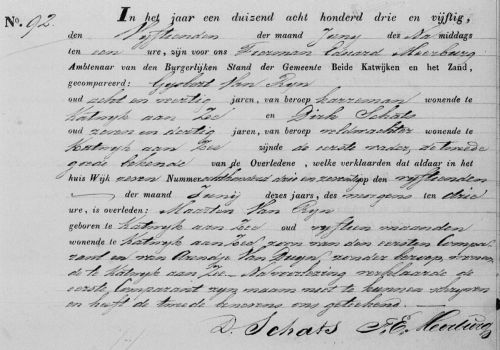 No. 92.
In het jaar een duizend acht honderd drie en vijftig,
den Vijftienden der maand Junij des Na middags
ten een ure, zijn voor ons Herman Eduard Meerburg
Ambtenaar van den Burgerlijken Stand der Gemeente Beide Katwijken en Het Zand,
gecompareerd: Gijsbert Van Rijn
oud acht en veertig jaren, van beroep karreman wonende te
Katwijk aan Zee en Dirk Schats
oud zeven en dertig jaren, van beroep veldwachter wonende te
Katwijk aan Zee zijnde de eerste vader, de tweede
goede bekende van de Overledene, welke verklaarden dat aldaar in het
huis Wijk Nummer drie en op den vijftienden
der maand Junij dezes jaars, des morgens ten drie
ure, is overleden: Maarten Van Rijn
geboren te Katwijk aan Zee oud vijftien maanden
wonende te Katwijk aan Zee, zoon van den eersten Compa-
rant en van Van Duijn, zonder beroep, wonen-
de te Katwijk aan Zee. Na voorlezing verklaarde de
eerste Comparant zijn naam niet te kunnen schrijven
en heeft de tweede nevens ons geteekend.
D. Schats H. E. Meerburg